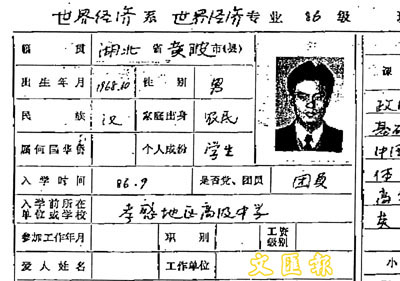 世界经济系 世界经济专业 86级
籍贯 湖北省黄陂市(县)
出生年月 1968.10 性别 男
民族 汉 家庭出身 农民
属何国华侨 个人成份 学生
入学时间 86.9 是否党、团员 团员
入学前所在单位或学校 孝感地区高级中学
参加工作年月 职别 工资级别
爱人姓名 工作单位
文匯報
小